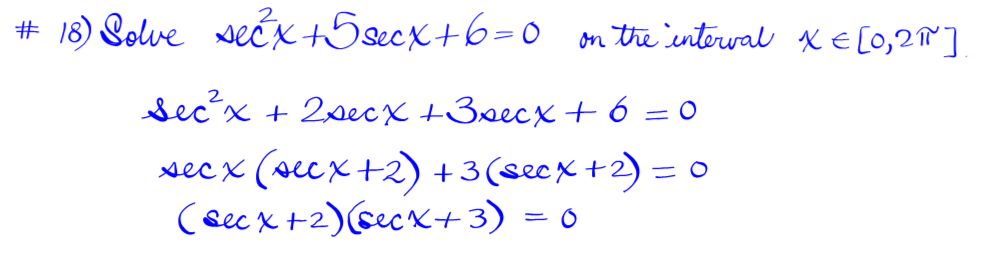 # 18) Solve sec²x + 5secx + 6 = 0 on the interval x ∈ [0, 2π]
sec²x + 2secx + 3secx + 6 = 0
secx (secx + 2) + 3(secx + 2) = 0
(secx + 2)(secx + 3) = 0